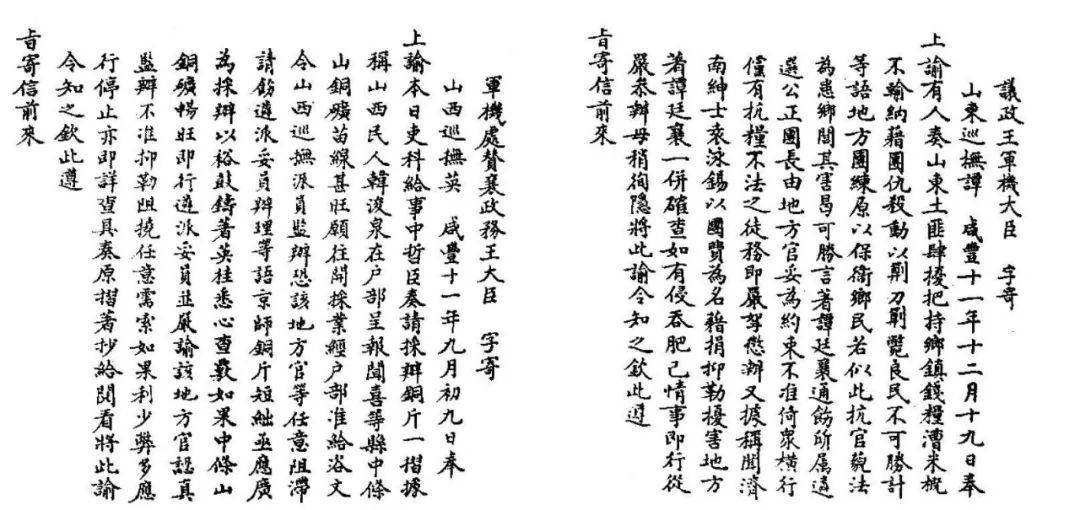 議政王軍機大臣　字寄
山東巡撫譚　咸豐十一年十二月十九日奉
上諭有人奏山東土匪肆擾把持鄉鎮錢糧漕米概
不輸納藉團仇殺動以荆刀劓斃良民不可勝計
等語地方團練原以保衛鄉民若似此抗官藐法
為患鄉閭其害曷可勝言著譚廷襄通飭所属遴
選公正團長由地方官妥為約束不准倚衆横行
僅有抗糧不法之徒務即嚴拏懲辦又據稱聞濟
南紳士袁泳錫以團費為名藉捐抑勒擾害地方
著譚廷襄一併確查如有侵吞肥己情事即行從
嚴叅辦毋稍徇隱將此諭令知之欽此遵
旨寄信前來
軍機處贊襄政務王大臣　字寄
山西巡撫英　咸豐十一年九月初九日奉
上諭本日吏科給事中哲臣奏請採辦銅斤一摺據
稱山西民人韓浚泉在户部呈報聞喜等縣中條
山銅礦苗線甚旺願往開採業經户部准給洛文
令山西巡撫派員監辦恐該地方官等任意阻滯
請飭遴派妥員辦理等語京師銅斤短絀亟應廣
為採辦以裕鼓鑄著英桂悉心查覈如果中條山
銅礦暢旺即行遴派妥員並嚴諭該地方官認真
監辦不准抑勒阻撓任意需索如果利少弊多應
行停止亦即詳查具奏原摺著抄給閱看將此諭
令知之欽此遵
旨寄信前來